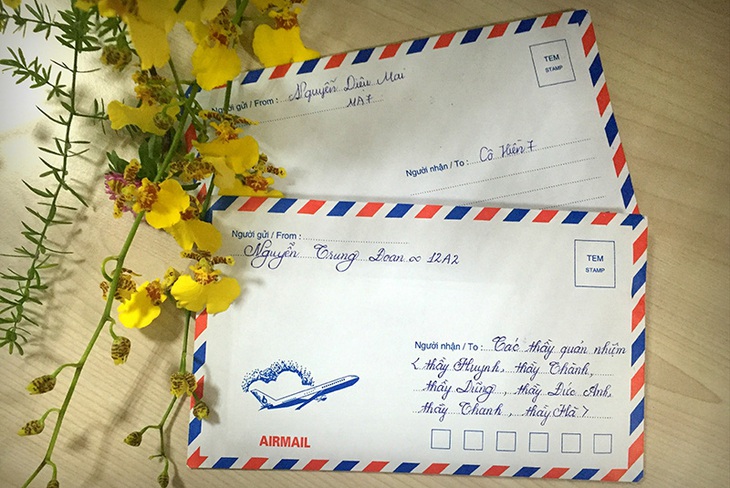 Người gửi / From : Nguyễn Diệu Mai
MA7
TEM
STAMP
Người nhận / To : Cô Hiền 7
Người gửi / From :
Nguyễn Trung Đoan ∞ 12A2
TEM
STAMP
Người nhận / To : Các thầy quản nhiệm
< thầy Huynh, thầy Thành,
thầy Dũng, thầy Đức Anh,
thầy Thanh, thầy Hà >
AIRMAIL